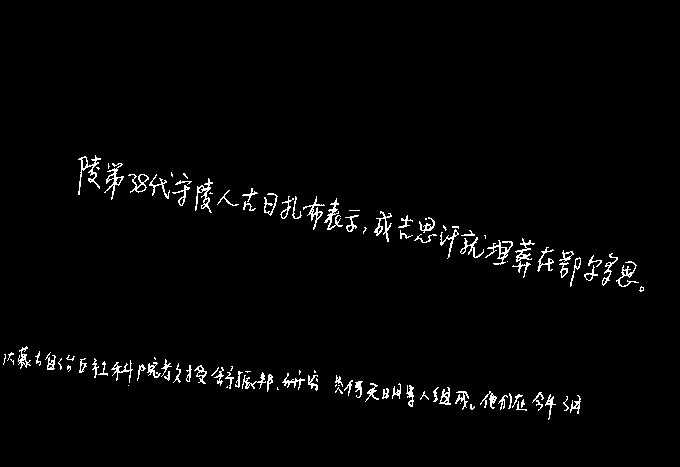 陵第38代守陵人古日扎布表示,成吉思汗就埋葬在鄂尔多思。
内蒙古自治区社科院教授舒振邦、研究员何天明等人组成。他们在今年3月